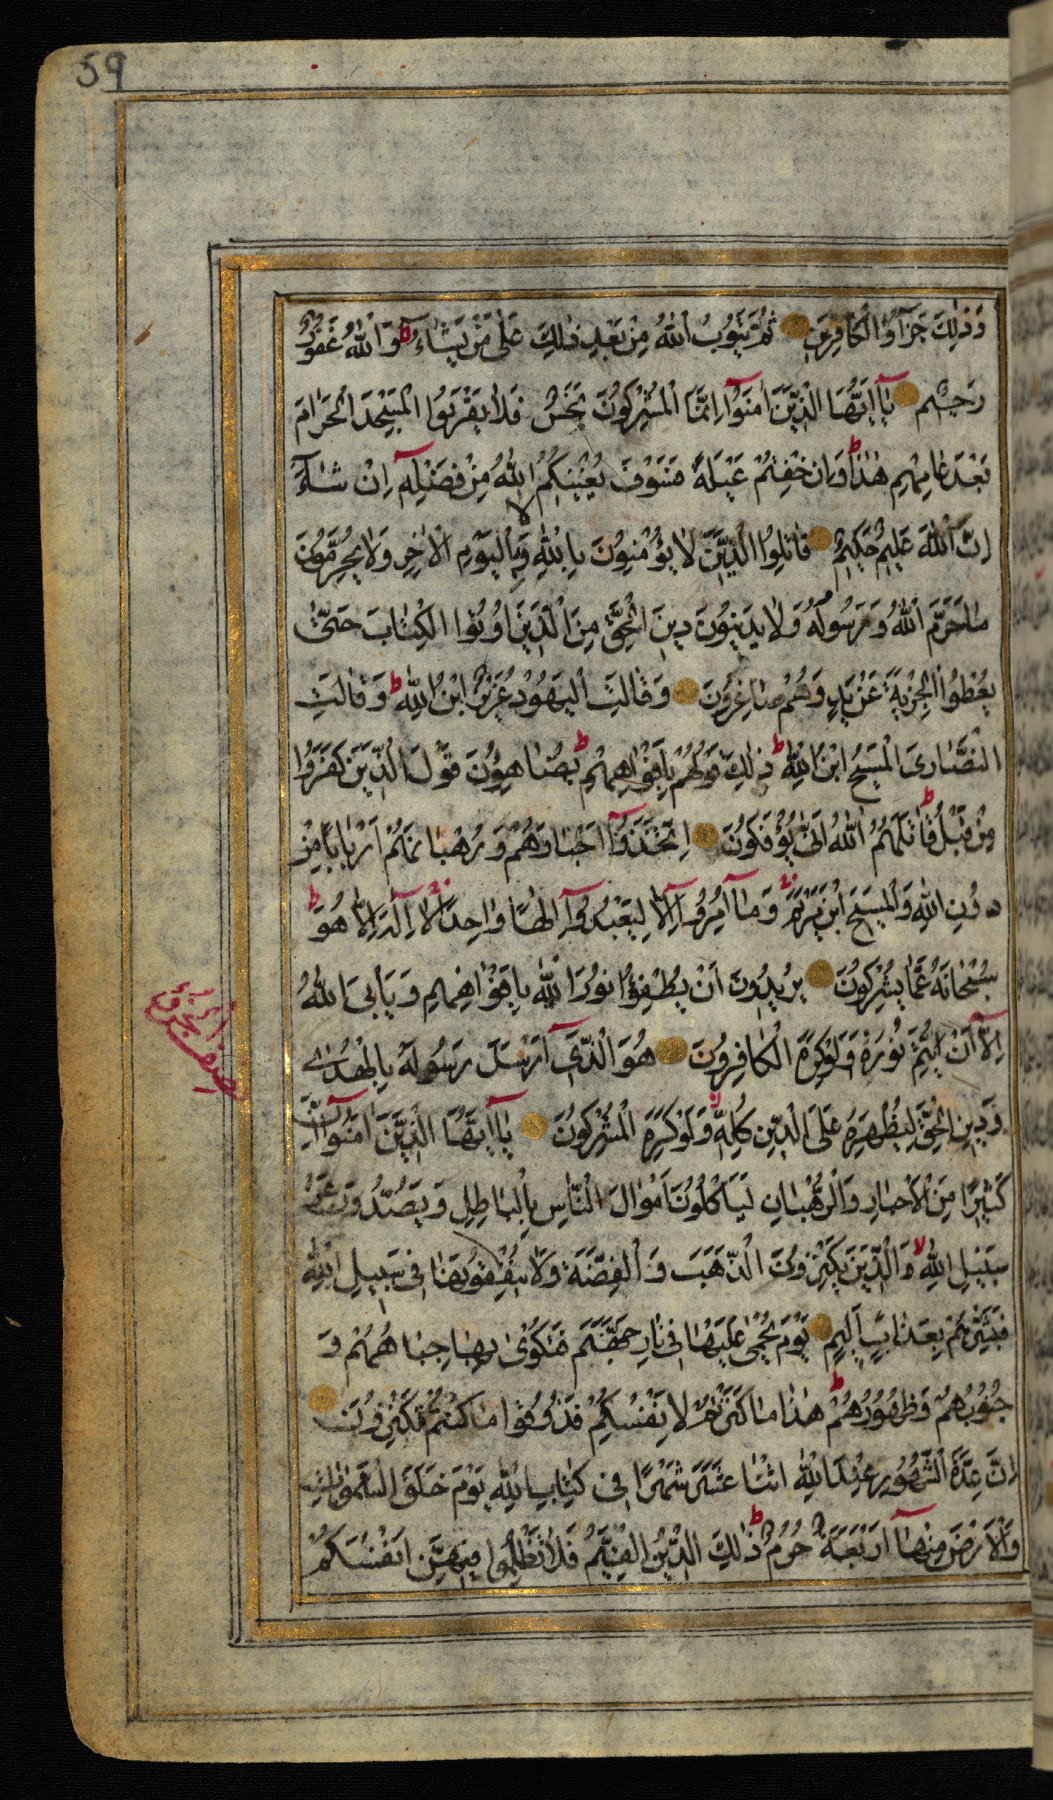 59
وَذٰلِكَ جَزَآؤُا الْكَافِرِينَ ثُمَّ يَتُوبُ اللّٰهُ مِنْ بَعْدِ ذٰلِكَ عَلٰى مَنْ يَشَآءُ ط وَاللّٰهُ غَفُورٌ
رَحِيمٌ يَآ اَيُّهَا الَّذِينَ اٰمَنُوآ اِنَّمَا الْمُشْرِكُونَ نَجَسٌ فَلَا يَقْرَبُوا الْمَسْجِدَ الْحَرَامَ
بَعْدَ عَامِهِمْ هٰذَا ط وَاِنْ خِفْتُمْ عَيْلَةً فَسَوْفَ يُغْنِيكُمُ اللّٰهُ مِنْ فَضْلِهٖٓ اِنْ شَآءَ
اِنَّ اللّٰهَ عَلِيمٌ حَكِيمٌ قَاتِلُوا الَّذِينَ لَا يُؤْمِنُونَ بِاللّٰهِ وَلَا بِالْيَوْمِ الْاٰخِرِ وَلَا يُحَرِّمُونَ
مَا حَرَّمَ اللّٰهُ وَرَسُولُهُ وَلَا يَدِينُونَ دِينَ الْحَقِّ مِنَ الَّذِينَ اُوتُوا الْكِتَابَ حَتّٰى
يُعْطُوا الْجِزْيَةَ عَنْ يَدٍ وَهُمْ صَاغِرُونَ وَقَالَتِ الْيَهُودُ عُزَيْرٌ ابْنُ اللّٰهِ ط وَقَالَتِ
النَّصَارَى الْمَسِيحُ ابْنُ اللّٰهِ ط ذٰلِكَ قَوْلُهُمْ بِاَفْوَاهِهِمْ ط يُضَاهِؤُنَ قَوْلَ الَّذِينَ كَفَرُوا
مِنْ قَبْلُ ط قَاتَلَهُمُ اللّٰهُ اَنّٰى يُؤْفَكُونَ اِتَّخَذُوآ اَحْبَارَهُمْ وَرُهْبَانَهُمْ اَرْبَابًا مِنْ
دُونِ اللّٰهِ وَالْمَسِيحَ ابْنَ مَرْيَمَ وَمَآ اُمِرُوآ اِلَّا لِيَعْبُدُوآ اِلٰهًا وَاحِدًا لَآ اِلٰهَ اِلَّا هُوَ ط
سُبْحَانَهُ عَمَّا يُشْرِكُونَ يُرِيدُونَ اَنْ يُطْفِؤُا نُورَ اللّٰهِ بِاَفْوَاهِهِمْ وَيَاْبَى اللّٰهُ
اِلَّآ اَنْ يُتِمَّ نُورَهُ وَلَوْ كَرِهَ الْكَافِرُونَ هُوَ الَّذِىٓ اَرْسَلَ رَسُولَهُ بِالْهُدٰى
وَدِينِ الْحَقِّ لِيُظْهِرَهُ عَلَى الدِّينِ كُلِّهٖ وَلَوْ كَرِهَ الْمُشْرِكُونَ يَآ اَيُّهَا الَّذِينَ اٰمَنُوآ اِنَّ
كَثِيرًا مِنَ الْاَحْبَارِ وَالرُّهْبَانِ لَيَاْكُلُونَ اَمْوَالَ النَّاسِ بِالْبَاطِلِ وَيَصُدُّونَ عَنْ
سَبِيلِ اللّٰهِ لا وَالَّذِينَ يَكْنِزُونَ الذَّهَبَ وَالْفِضَّةَ وَلَا يُنْفِقُونَهَا فِى سَبِيلِ اللّٰهِ
فَبَشِّرْهُمْ بِعَذَابٍ اَلِيمٍ يَوْمَ يُحْمٰى عَلَيْهَا فِى نَارِ جَهَنَّمَ فَتُكْوٰى بِهَا جِبَاهُهُمْ وَ
جُنُوبُهُمْ وَظُهُورُهُمْ ط هٰذَا مَا كَنَزْتُمْ لِاَنْفُسِكُمْ فَذُوقُوا مَا كُنْتُمْ تَكْنِزُونَ
اِنَّ عِدَّةَ الشُّهُورِ عِنْدَ اللّٰهِ اثْنَا عَشَرَ شَهْرًا فِى كِتَابِ اللّٰهِ يَوْمَ خَلَقَ السَّمٰوَاتِ
وَالْاَرْضَ مِنْهَآ اَرْبَعَةٌ حُرُمٌ ط ذٰلِكَ الدِّينُ الْقَيِّمُ فَلَا تَظْلِمُوا فِيهِنَّ اَنْفُسَكُمْ
نصف الجزؤ